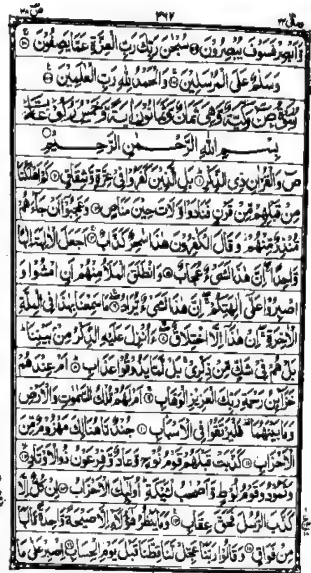 وَّاَبْصِرْ فَسَوْفَ يُبْصِرُوْنَ سُبْحٰنَ رَبِّكَ رَبِّ الْعِزَّةِ عَمَّا يَصِفُوْنَ
وَسَلٰمٌ عَلَى الْمُرْسَلِيْنَ وَالْحَمْدُ لِلّٰهِ رَبِّ الْعٰلَمِيْنَ
بِسْمِ اللّٰهِ الرَّحْمٰنِ الرَّحِيْمِ
صٓ وَالْقُرْاٰنِ ذِى الذِّكْرِ بَلِ الَّذِيْنَ كَفَرُوْا فِىْ عِزَّةٍ وَّشِقَاقٍ كَمْ اَهْلَكْنَا
مِنْ قَبْلِهِمْ مِّنْ قَرْنٍ فَنَادَوْا وَّلَاتَ حِيْنَ مَنَاصٍ وَعَجِبُوْٓا اَنْ جَآءَهُمْ
مُّنْذِرٌ مِّنْهُمْ وَقَالَ الْكٰفِرُوْنَ هٰذَا سٰحِرٌ كَذَّابٌ اَجَعَلَ الْاٰلِهَةَ اِلٰهًا
وَّاحِدًا اِنَّ هٰذَا لَشَىْءٌ عُجَابٌ وَانْطَلَقَ الْمَلَاُ مِنْهُمْ اَنِ امْشُوْا وَ
اصْبِرُوْا عَلٰٓى اٰلِهَتِكُمْ اِنَّ هٰذَا لَشَىْءٌ يُّرَادُ مَا سَمِعْنَا بِهٰذَا فِى الْمِلَّةِ
الْاٰخِرَةِ اِنْ هٰذَآ اِلَّا اخْتِلَاقٌ ءَاُنْزِلَ عَلَيْهِ الذِّكْرُ مِنْ بَيْنِنَا
بَلْ هُمْ فِىْ شَكٍّ مِّنْ ذِكْرِىْ بَلْ لَّمَّا يَذُوْقُوْا عَذَابِ اَمْ عِنْدَهُمْ
خَزَآئِنُ رَحْمَةِ رَبِّكَ الْعَزِيْزِ الْوَهَّابِ اَمْ لَهُمْ مُّلْكُ السَّمٰوٰتِ وَالْاَرْضِ
وَمَا بَيْنَهُمَا فَلْيَرْتَقُوْا فِى الْاَسْبَابِ جُنْدٌ مَّا هُنَالِكَ مَهْزُوْمٌ مِّنَ
الْاَحْزَابِ كَذَّبَتْ قَبْلَهُمْ قَوْمُ نُوْحٍ وَّعَادٌ وَّفِرْعَوْنُ ذُو الْاَوْتَادِ
وَثَمُوْدُ وَقَوْمُ لُوْطٍ وَّاَصْحٰبُ لْـَٔيْكَةِ اُولٰٓئِكَ الْاَحْزَابُ اِنْ كُلٌّ اِلَّا
كَذَّبَ الرُّسُلَ فَحَقَّ عِقَابِ وَمَا يَنْظُرُ هٰٓؤُلَآءِ اِلَّا صَيْحَةً وَّاحِدَةً مَّا لَهَا
مِنْ فَوَاقٍ وَقَالُوْا رَبَّنَا عَجِّلْ لَّنَا قِطَّنَا قَبْلَ يَوْمِ الْحِسَابِ اِصْبِرْ عَلٰى مَا